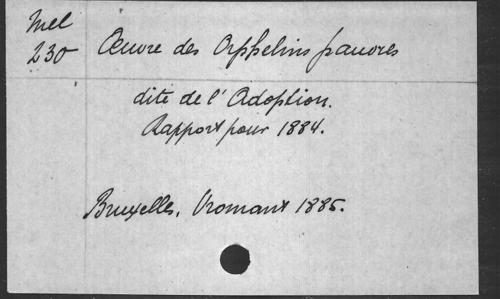 Mel
230
Œuvre des Orphelins pauvres
dite de l'Adoption.
Rapport pour 1884.
Bruxelles, Vromant 1885.